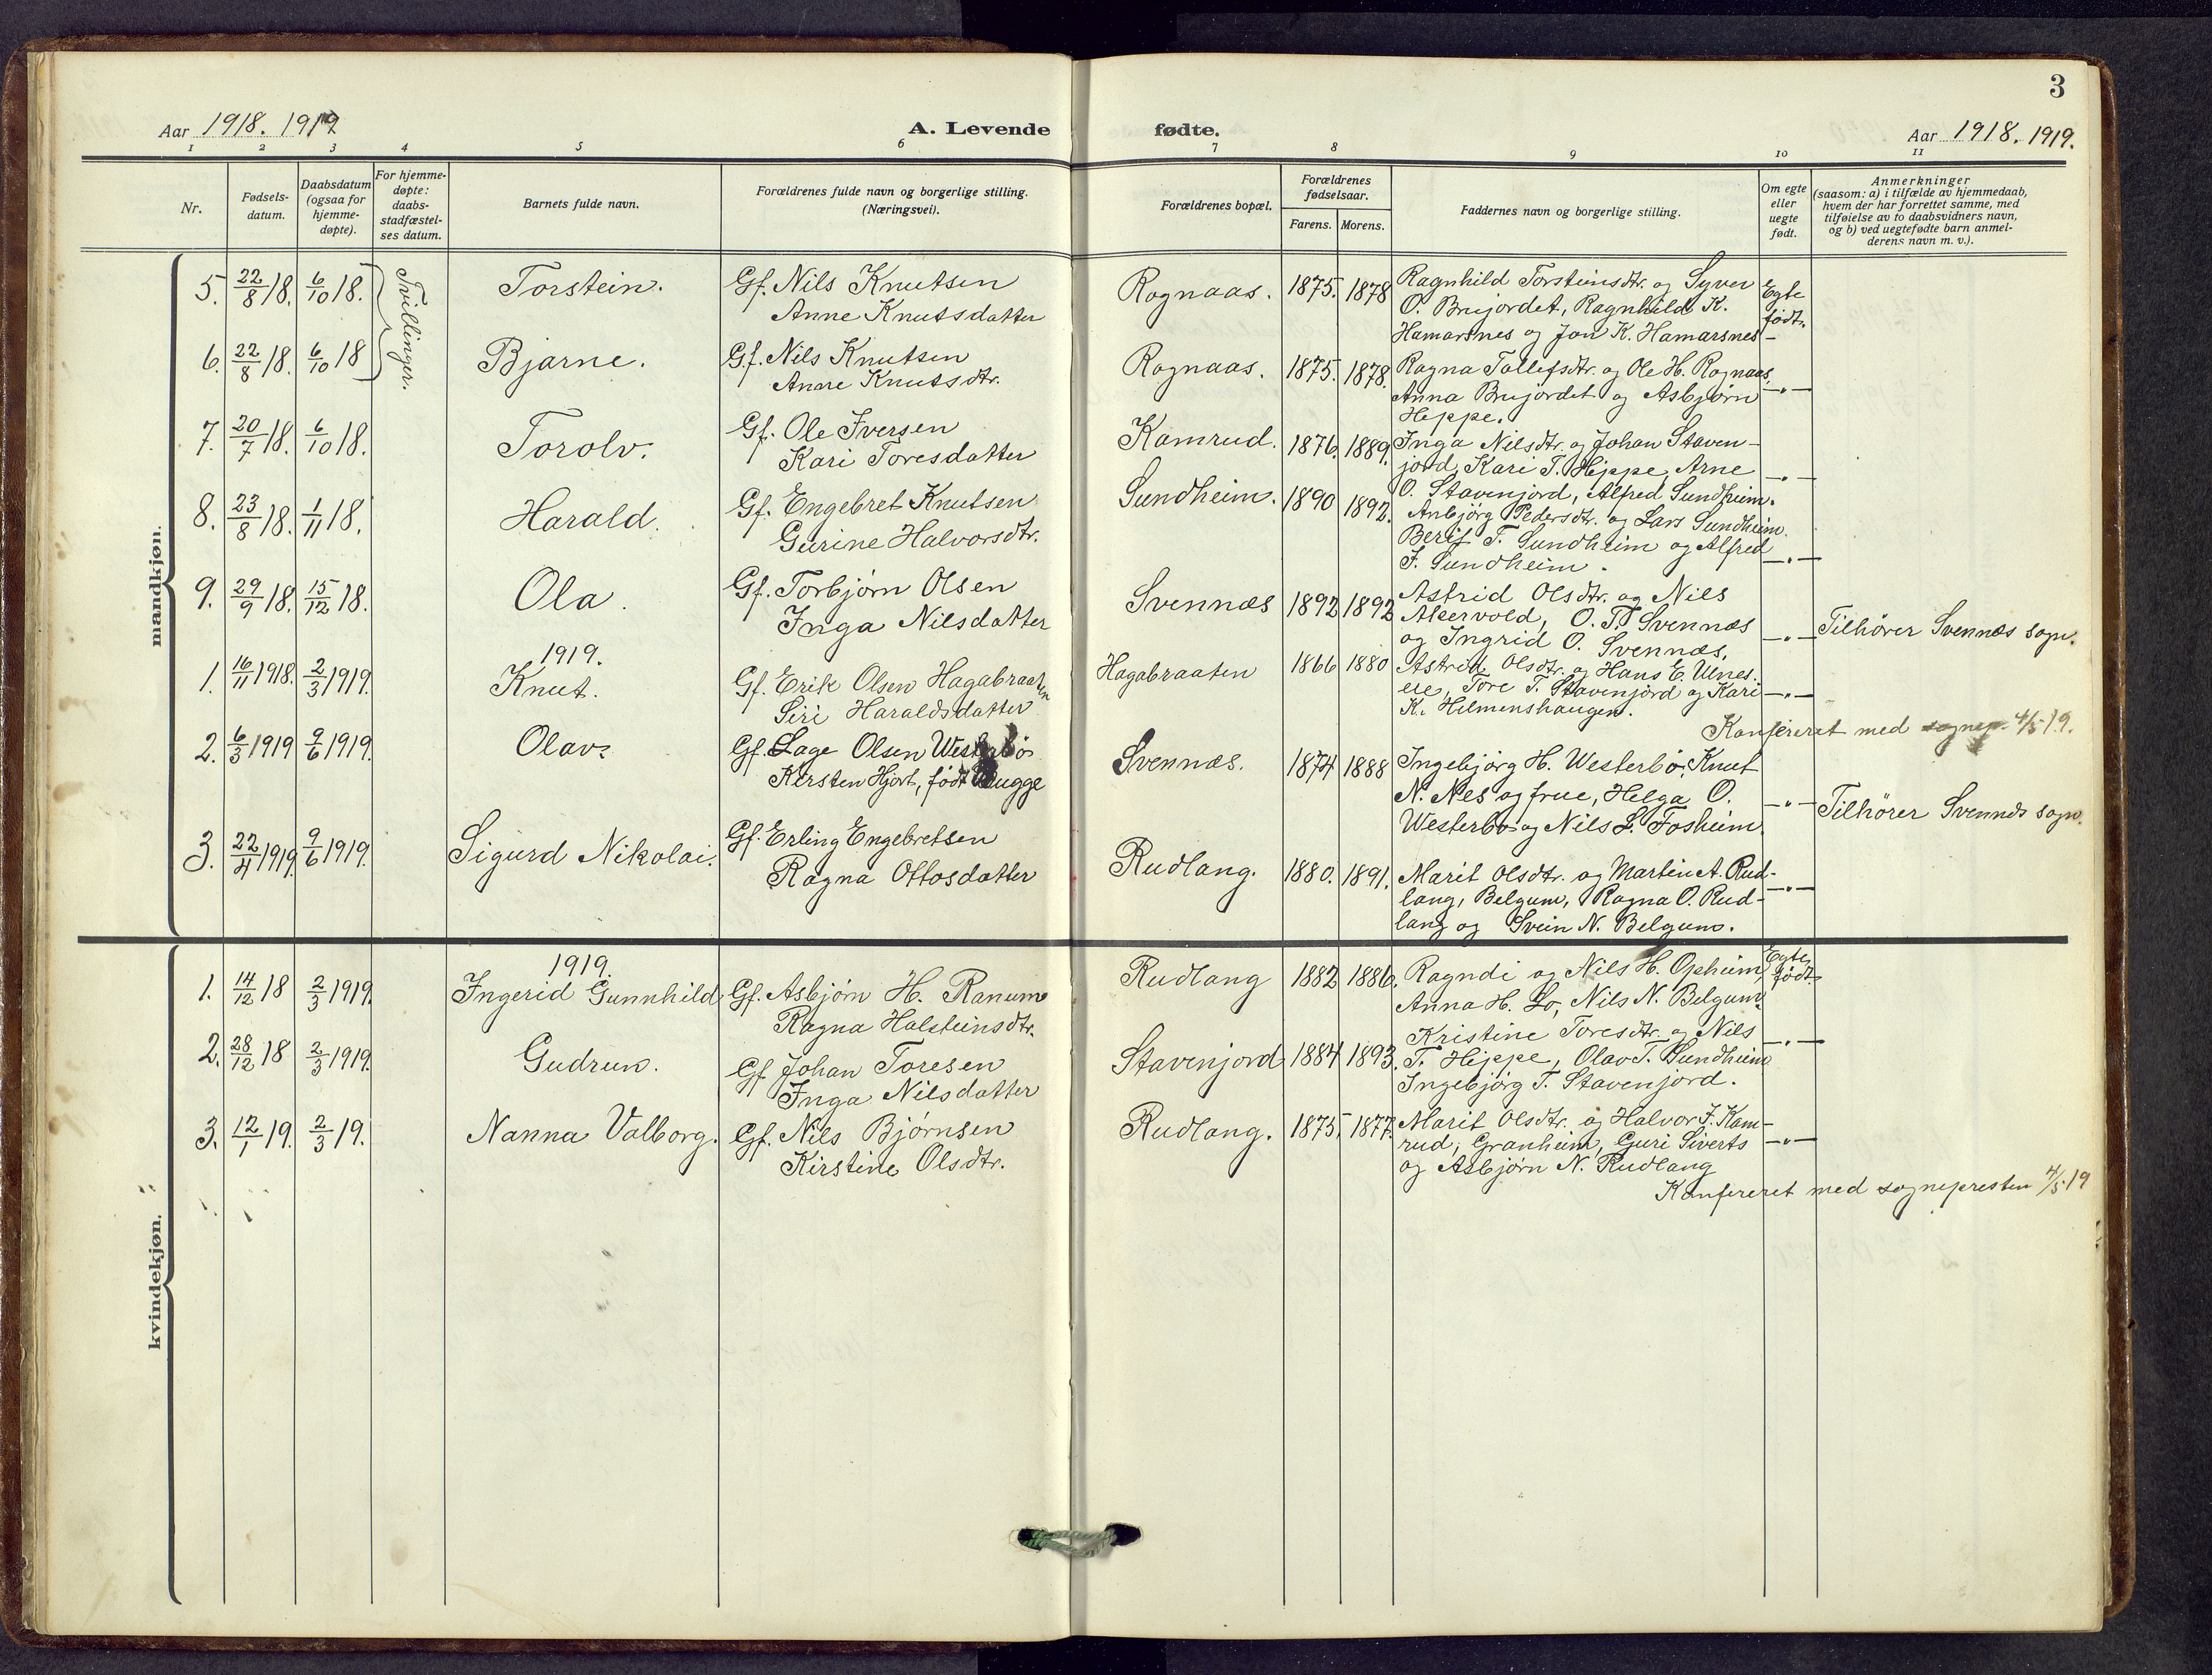 3
Aar 1918. 1919
A. Levende fødte.
Aar 1918. 1919.
1 2 3 4 5 6 7 8 9 10 11
Nr.
Fødsels-
datum.
Daabsdatum
(ogsaa for
hjemme-
døpte).
For hjemme-
døpte:
daabs-
stadfæstel-
ses datum.
Barnets fulde navn.
Forældrenes fulde navn og borgerlige stilling.
(Næringsvei).
Forældrenes bopæl.
Forældrenes
fødselsaar.
Farens. Morens.
Faddernes navn og borgerlige stilling.
Om egte
eller
uegte
født.
Anmerkninger
(saasom: a) i tilfælde av hjemmedaab,
hvem der har forrettet samme, med
tilføielse av to daabsvidners navn,
og b) ved uegtefødte barn anmel-
derens navn m. v.).
mandkjøn.
Tvillinger.
5. 22/8 18. 6/10 18. Torstein. Gf. Nils Knutsen Rognaas. 1875. 1878 Ragnhild Torsteinsdtr. og Syver Egte
Anne Knutsdatter O. Brujordet, Ragnhild K. født.
Hamarsnes og Jon K. Hamarsnes
6. 22/8 18. 6/10 18 Bjarne. Gf. Nils Knutsen Rognaas. 1875. 1878. Ragna Tollefsdtr. og Ole H. Rognaas,
Anne Knutsdtr. Anna Brujordet og Asbjørn -"-
Heppe.
7. 20/7 18. 6/10 18. Torolv. Gf. Ole Iversen Kamrud. 1876. 1889. Inga Nilsdtr. og Johan Staven-
Kari Toresdatter jord, Kari T. Hippe, Arne -"-
O. Stavenjord, Alfred Sundheim.
8. 23/8 18. 1/11 18. Harald. Gf. Engebret Knutsen Sundheim. 1890 1892. Anbjörg Pedersdtr. og Lars Sundheim
Gurine Halvorsdtr. Berit T. Sundheim og Alfred
J. Sundheim. -"-
9. 29/9 18. 15/12 18. Ola. Gf. Torbjørn Olsen Svennæs 1892 1892 Astrid Olsdtr. og Nils
Inga Nilsdatter Akervold, O. T. Svennæs
og Ingrid O. Svennæs. -"- Tilhører Svennæs sogn.
1919.
1. 16/11 1918. 2/3 1919. Knut. Gf. Erik Olsen Hagabraaten Hagabraaten 1866 1880 Astrid Olsdtr. og Hans E. Ulnes.
Siri Haraldsdatter eie, Tore T. Stavenjord og Kari -"-
K. Hilmenshaugen.
Konfereret med sognep. 4/5 19.
2. 6/3 1919 9/6 1919. Olav. Gf. Lage Olsen Westerbø Svennæs. 1874 1888 Ingebjörg H. Westerbø, Knut
Kirsten Hjort, født Bugge N. Nes og frue, Helga O. -"- Tilhører Svennes sogn.
Westerbø og Nils L. Fosheim.
3. 22/4 1919. 9/6 1919. Sigurd Nikolai. Gf. Erling Engebretsen Rudlang. 1880. 1891. Marit Olsdtr. og Martin A. Rud-
Ragna Ottosdatter lang, Belgum, Ragna O. Rud- -"-
lang og Svein N. Belgum.
kvindekjøn.
1919.
1. 14/12 18 2/3 1919. Ingerid Gunnhild Gf. Asbjørn H. Ranum Rudlang 1882 1886. Ragndi og Nils H. Opheim, Egte
Ragna Halsteinsdtr. Anna H. Lo, Nils N. Belgum. født.
2. 28/12 18 2/3 1919. Gudrun. Gf. Johan Toresen Stavenjord 1884 1893. Kristine Toresdtr. og Nils -"-
Inga Nilsdatter T. Hippe, Olav T. Sundheim
Ingebjörg T. Stavenjord.
3. 12/1 19. 2/3 19. Nanna Valborg. Gf. Nils Bjørnsen Rudlang. 1875. 1877. Marit Olsdtr. og Halvor J. Kam-
Kirstine Olsdtr. rud, Granheim, Guri Siverts -"-
og Asbjørn N. Rudlang
Konfereret med sognepresten 4/5 19